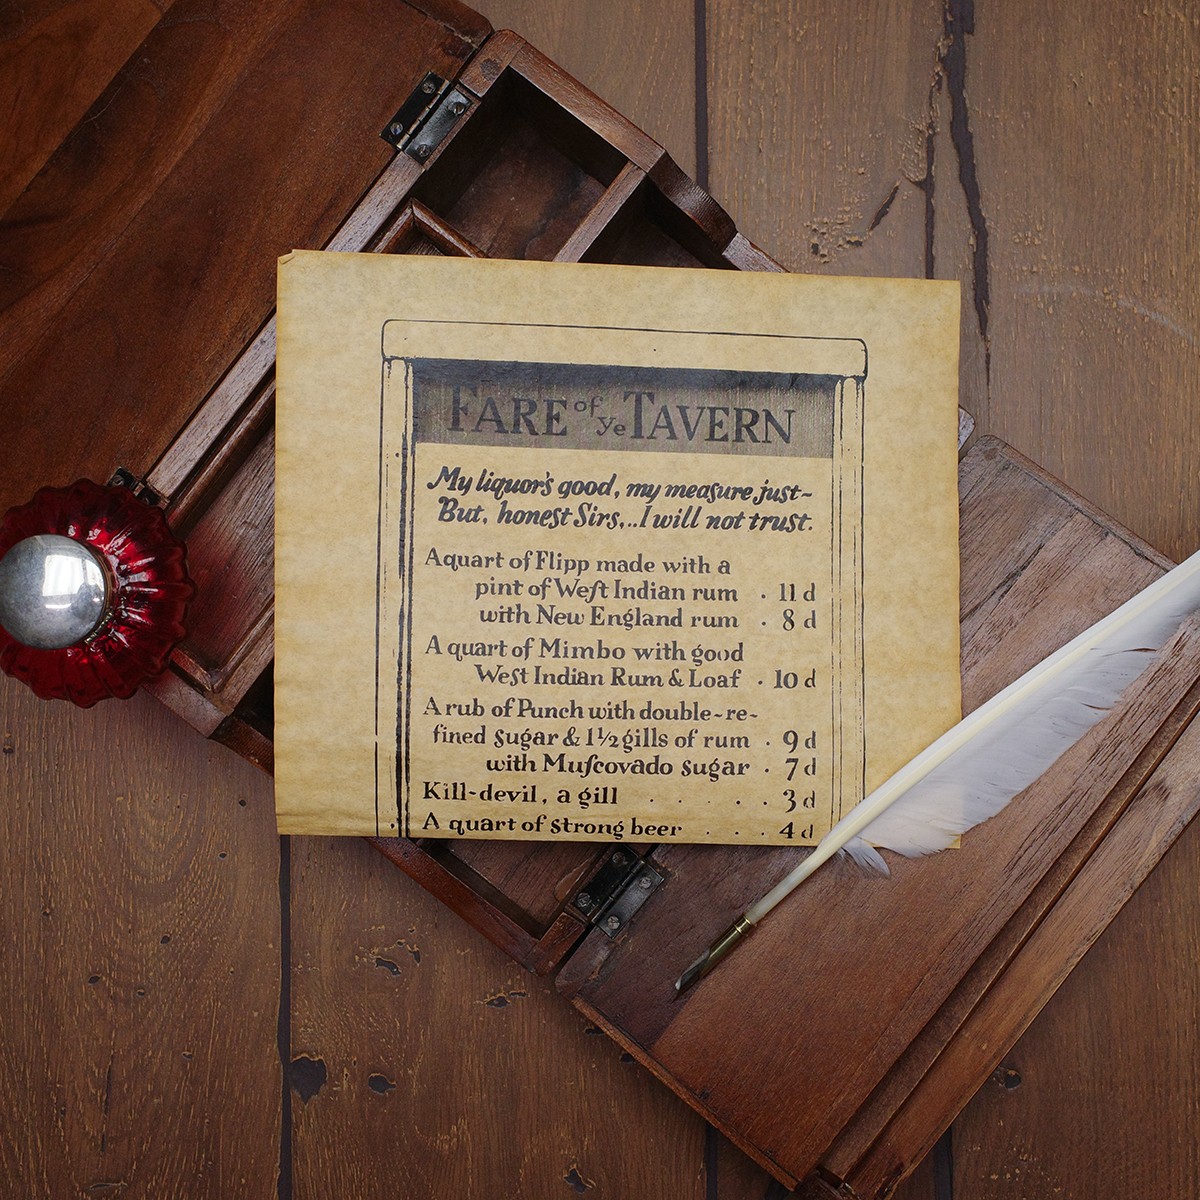 FARE of ye TAVERN
My liquor's good, my meaſure just~
But, honest Sirs,..I will not trust.
A quart of Flipp made with a
pint of Weſt Indian rum . 11 d
with New England rum . 8 d
A quart of Mimbo with good
West Indian Rum & Loaf . 10 d
A rub of Punch with double~re~
fined sugar & 1½ gills of rum . 9 d
with Muſcovado sugar . 7 d
Kill~devil, a gill . . . . . 3 d
A quart of strong beer . . . 4 d